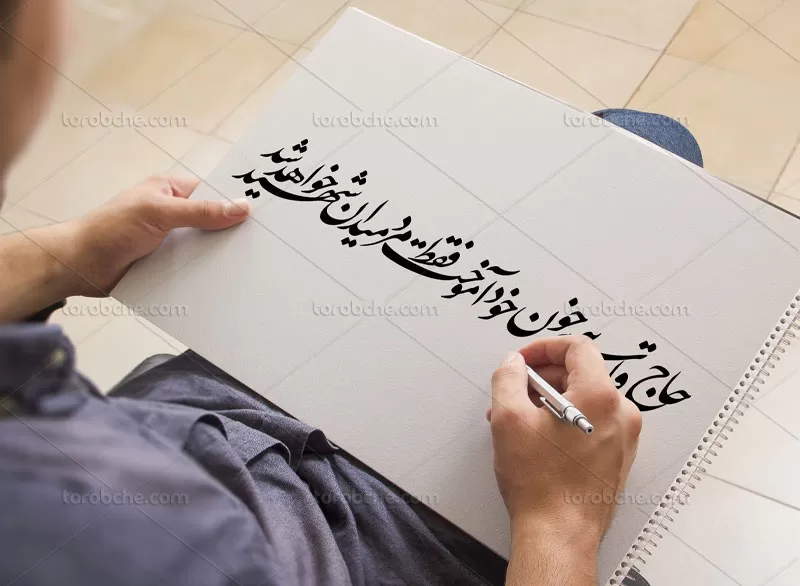 حاج به خون خود آموخت فقط مرد میدان شهید خواهد شد
torobche.com torobche.com torobche.com
torobche.com torobche.com torobche.com
torobche.com torobche.com torobche.com